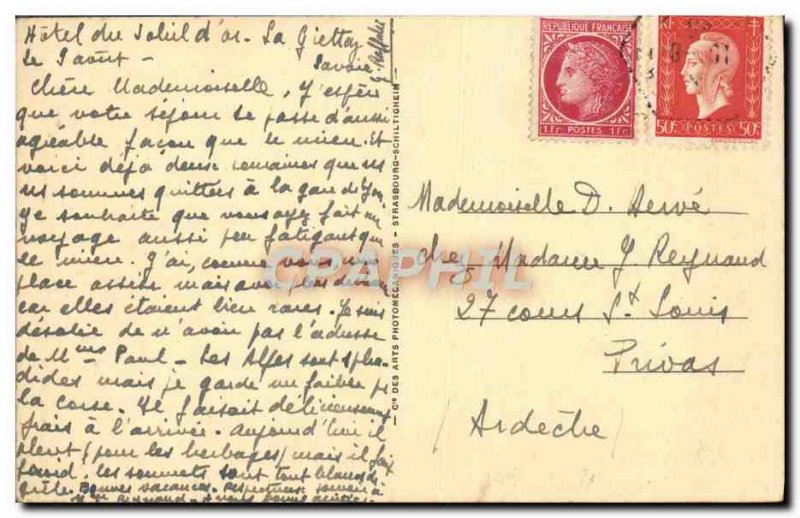 Hôtel du Soleil d'or. La Giettaz
le 9 août - Savoie
Chère Mademoiselle, J'espère
que votre séjour se passe d'aussi
agréable façon que le mien. Et
voici déjà deux semaines que ns
ns sommes quittées à la gare de
Je souhaite que vous ayez fait un
voyage aussi peu fatigant que
le mien. J'ai, comme vous, une
place assise mais
car elles étaient bien rares. Je suis
désolée de n'avoir pas l'adresse
de Mme Paul - Les Alpes sont splen-
dides mais je garde un faible pr
la Corse. Il faisait délicieusement
frais à l'arrivée. Aujourd'hui il
pleut (pour les herbages) mais il fait
froid. les sommets sont tout blancs de
grêle. Bonnes vacances. Respectueux souvenir à
Mme Reynaud - à vous bonne amitié
Cie DES ARTS PHOTOMÉCANIQUES - STRASBOURG-SCHILTIGHEIM
REPUBLIQUE FRANÇAISE
1Fr POSTES 1Fr
RF
50c POSTES 50c
Mademoiselle D. Hervé
chez Madame J Reynaud
27 cours St Louis
Privas
Ardèche
CPAPHIL